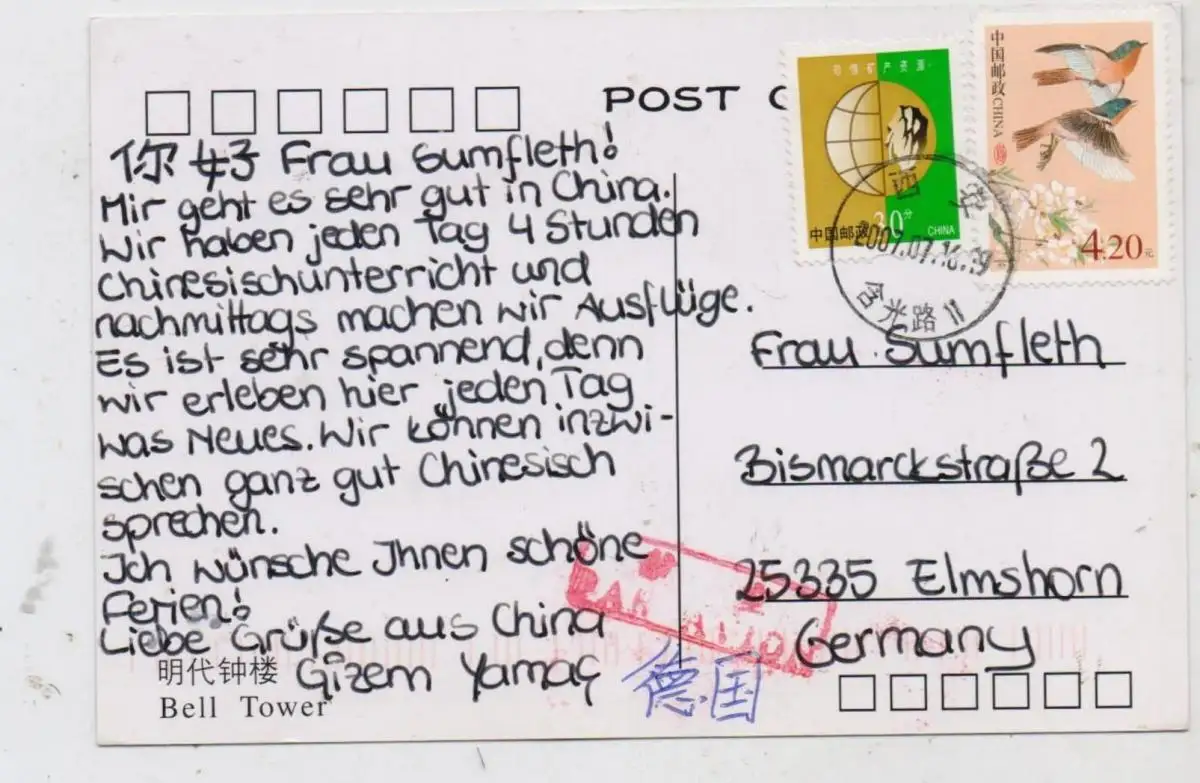 POST C
你好 Frau Sumfleth!
Mir geht es sehr gut in China.
Wir haben jeden Tag 4 Stunden
Chinesischunterricht und
nachmittags machen wir Ausflüge.
Es ist sehr spannend, denn
wir erleben hier jeden Tag
was Neues. Wir können inzwi-
schen ganz gut Chinesisch
sprechen.
Ich wünsche Ihnen schöne
Ferien!
Liebe Grüße aus China
Gizem Yamaç
明代钟楼
Bell Tower
德国
珍惜矿产资源
中国邮政 30分 CHINA
中国邮政 CHINA
4.20元
西安
2007.07.16.19
含光路
Frau Sumfleth
Bismarckstraße 2
25335 Elmshorn
Germany
PAR AVION